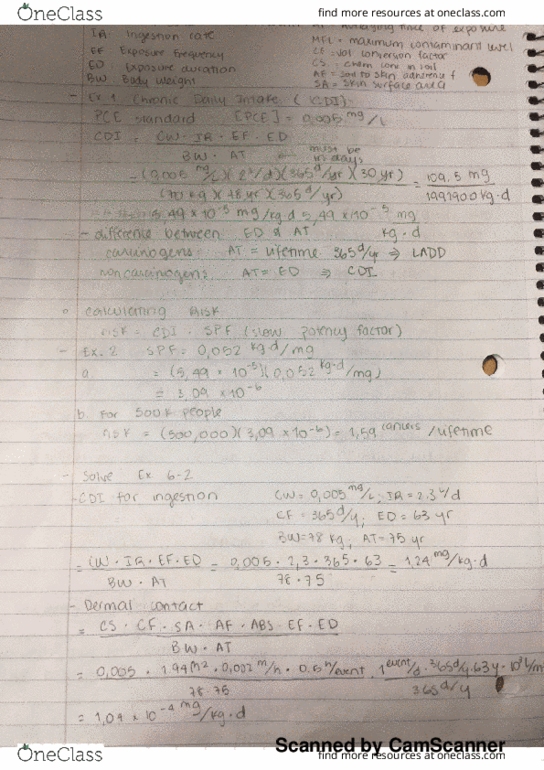 OneClass
find more resources at oneclass.com
IR Ingestion rate
EF Exposure Frequency
ED Exposure duration
BW Body weight
MFL = maximum contaminant level
CF = vol conversion factor
CS = chem conc in soil
AF = soil to skin adherence f
SA = skin surface area
- Ex 1 Chronic Daily Intake (CDI):
PCE standard [PCE] = 0,005 mg/L
CDI = CW · IR · EF · ED
BW · AT
must be in days
= (0,005 mg/L)(2 L/d)(365 d/yr)(30 yr) = 109,5 mg
(70 kg)(78 yr)(365 d/yr) 1991900 kg·d
5,49 x 10⁻⁵ mg/kg·d 5,49 x 10⁻⁵ mg
kg · d
- difference between ED & AT
carcinogens: AT = lifetime 365 d/yr ⇒ LADD
noncarcinogens: AT = ED ⇒ CDI
Calculating RISK
RISK = CDI · SPF (slow potency factor)
- Ex. 2 SPF = 0,052 kg·d/mg
a. = (5,49 x 10⁻⁵)(0,052 kg·d/mg)
= 3,09 x 10⁻⁶
b. For 500K people
RISK = (500,000)(3,09 x 10⁻⁶) = 1,59 cancers/lifetime
- Solve Ex 6-2
- CDI for ingestion
CW = 0,005 mg/L; IR = 2.3 L/d
CF = 365 d/y; ED = 63 yr
BW = 78 kg; AT = 75 yr
= CW · IR · EF · ED = 0,005 · 2,3 · 365 · 63 = 1,24 mg/kg·d
BW · AT 78 · 75
- Dermal contact
= CS · CF · SA · AF · ABS · EF · ED
BW · AT
= 0,005 · 1.94 m² · 0,002 m/h · 0.5 h/event · 1 event/d · 365 d/y · 63 y · 10³ L/m
78 · 75 365 d/y
= 1,04 x 10⁻⁴ mg/kg·d
Scanned by CamScanner
OneClass
find more resources at oneclass.com